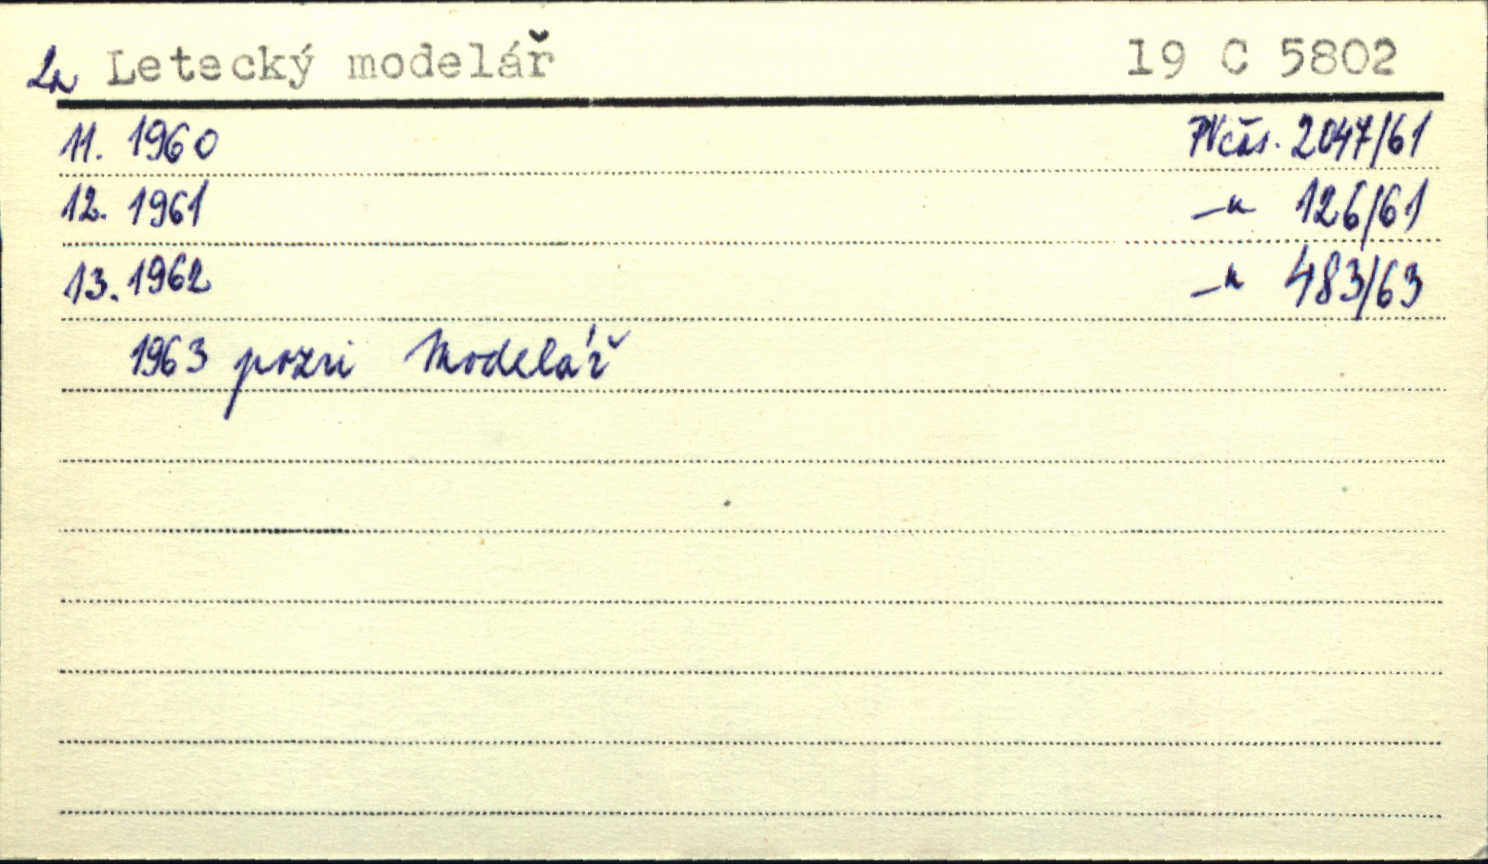 Letecký modelář 19 C 5802
11. 1960 PVčas. 2047/61
12. 1961 -"- 126/61
13. 1962 -"- 483/63
1963 pozri Modelář